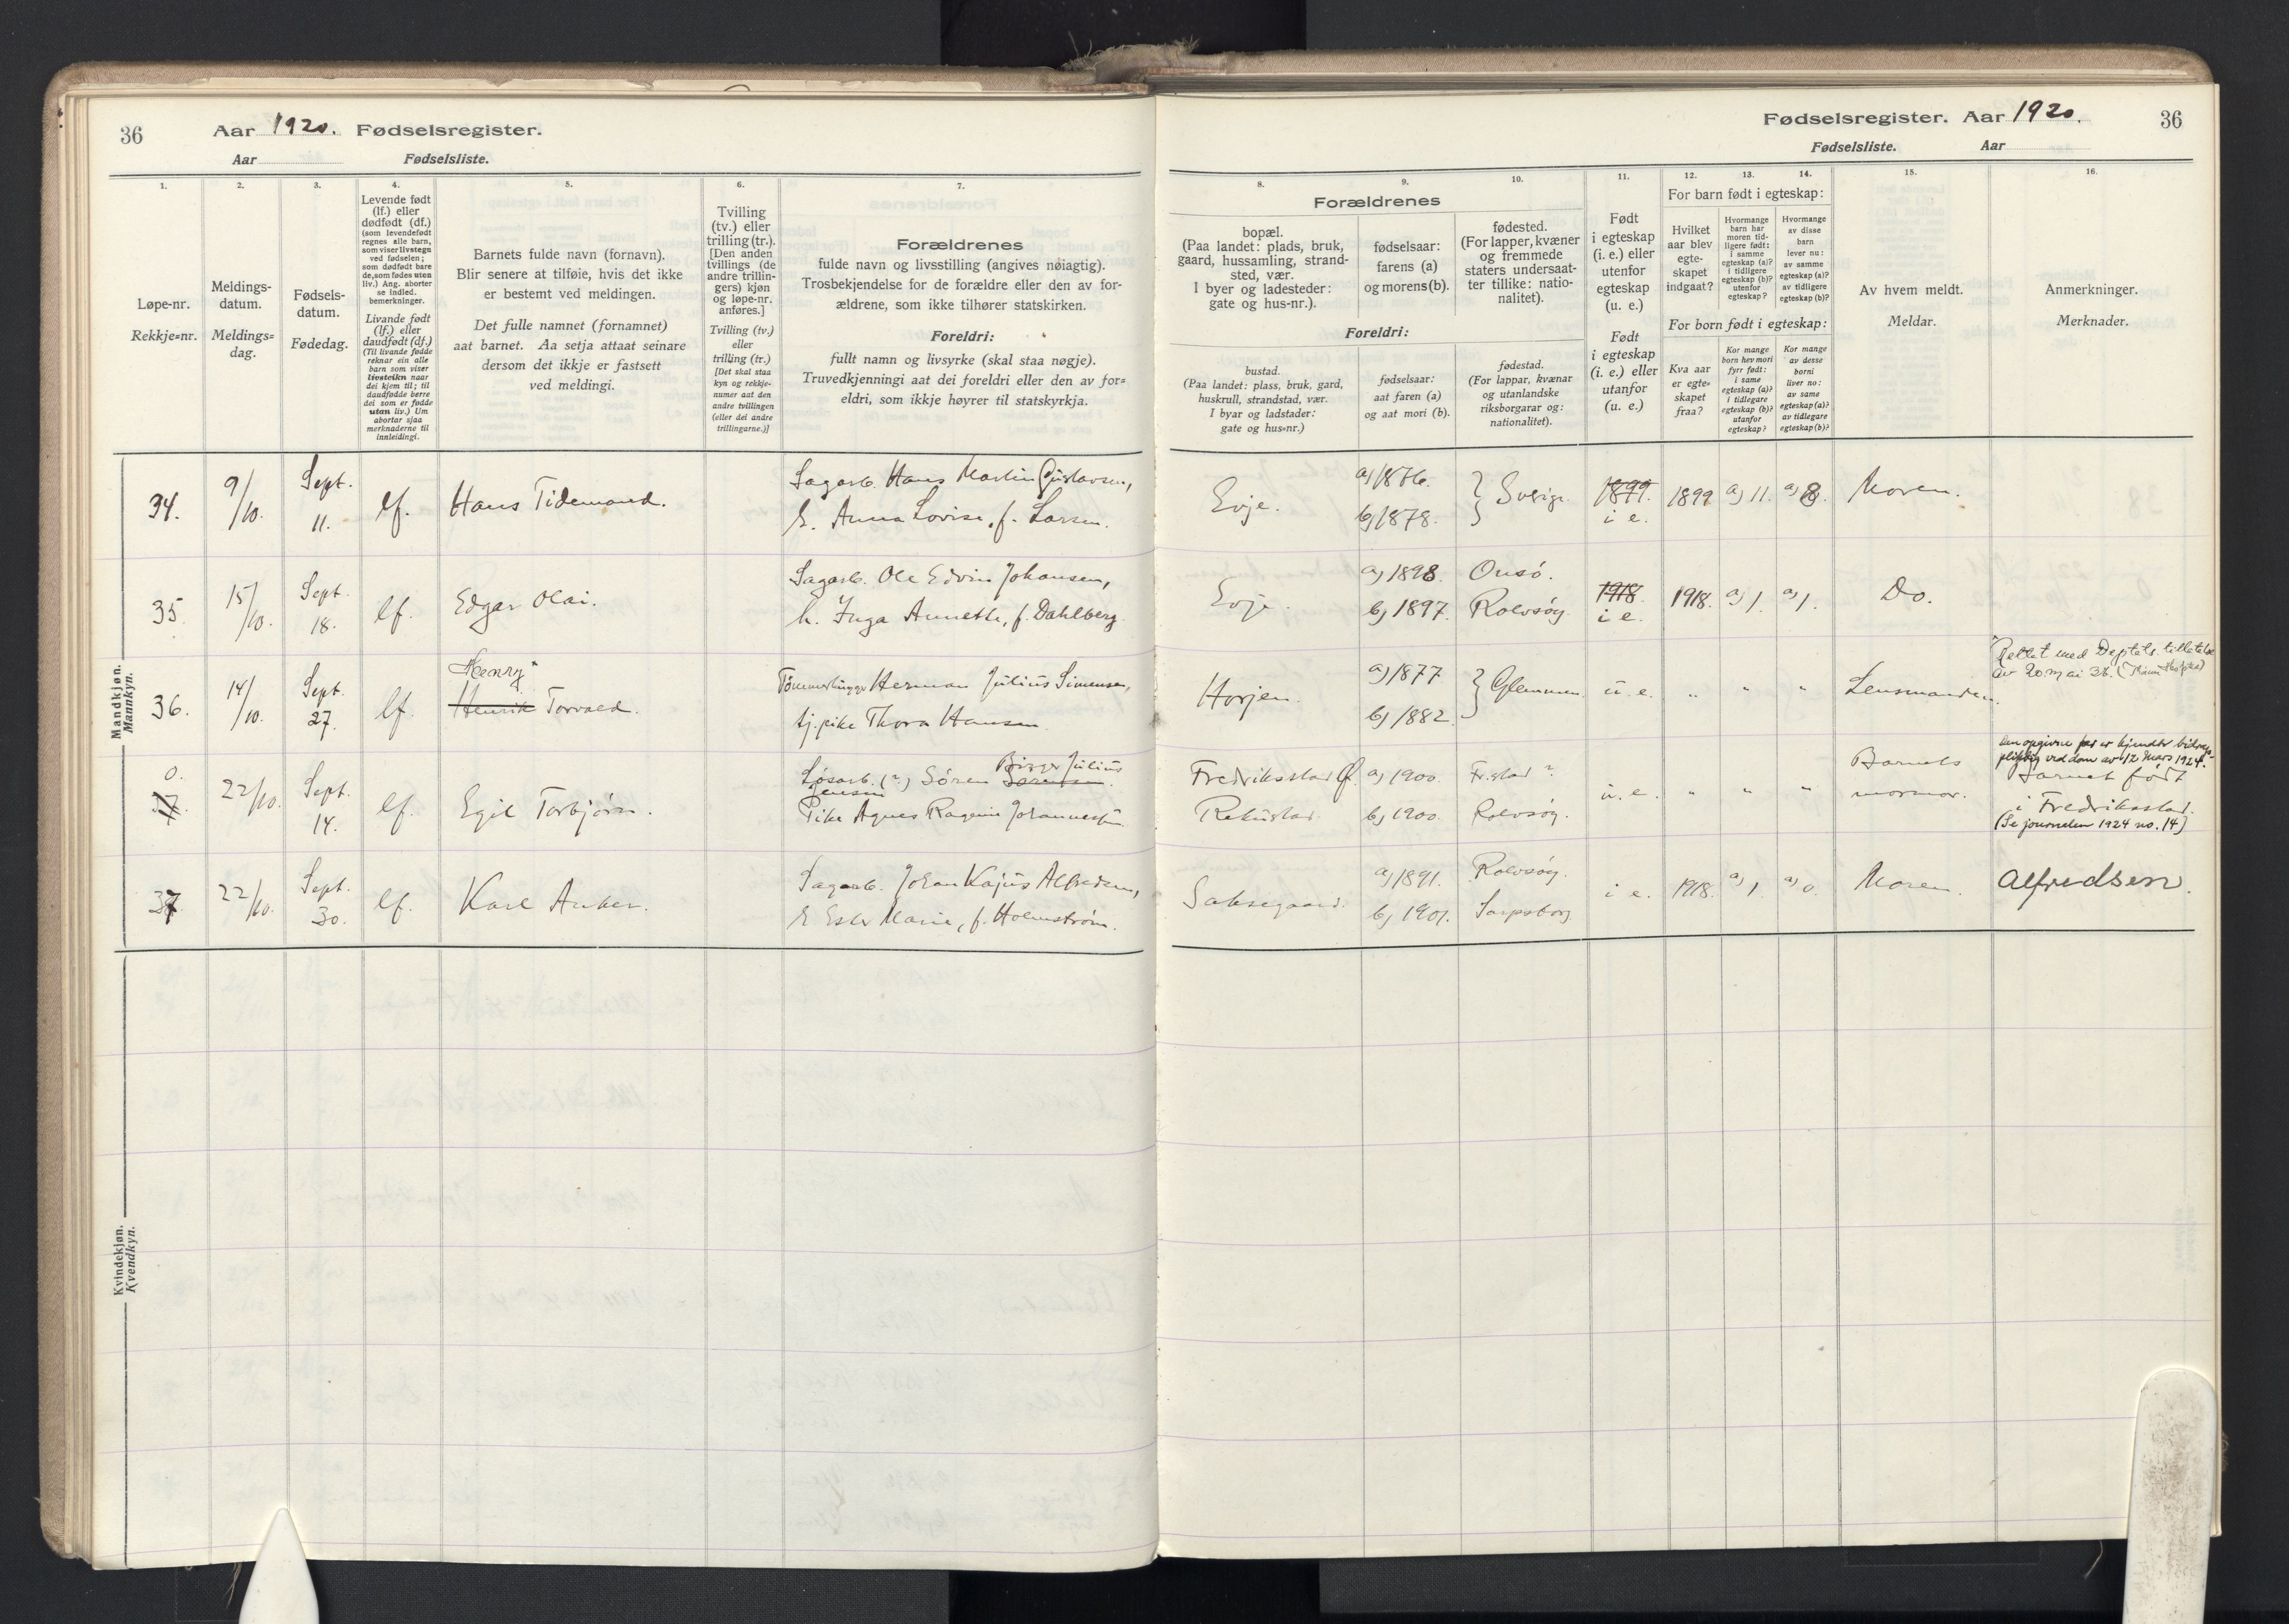 36
Aar 1920. Fødselsregister.
Aar Fødselsliste.
1.
2.
3.
4.
5.
6.
7.
Løpe-nr.
Rekkje=nr.
Meldings-
datum.
Meldings=
dag.
Fødsels-
datum.
Fødedag.
Levende født
(lf.) eller
dødfødt (df.)
(som levendefødt
regnes alle barn,
som viser livstegn
ved fødselen;
som dødfødt bare
de, som fødes uten
liv.) Ang. aborter
se indled.
bemerkninger.
Livande født
(lf.) eller
daudfødt (df.)
(Til livande fødde
reknar ein alle
barn som viser
livsteikn naar
dei kjem til; til
daudfødde berre
dei som er fødde
utan liv.) Um
abortar sjaa
merknaderne til
innleidingi.
Barnets fulde navn (fornavn).
Blir senere at tilføie, hvis det ikke
er bestemt ved meldingen.
Det fulle namnet (fornamnet)
aat barnet. Aa setja attaat seinare
dersom det ikkje er fastsett
ved meldingi.
Tvilling
(tv.) eller
trilling (tr.).
[Den anden
tvillings (de
andre trillin-
gers) kjøn
og løpe-nr.
anføres.]
Tvilling (tv.)
eller
trilling (tr.)
[Det skal staa
kyn og rekkje-
numer aat den
andre tvillingen
(eller dei andre
trillingarne.)]
Forældrenes
fulde navn og livsstilling (angives nøiagtig).
Trosbekjendelse for de forældre eller den av for-
ældrene, som ikke tilhører statskirken.
Foreldri:
fullt namn og livsyrke (skal staa nøgje).
Truvedkjenningi aat dei foreldri eller den av for=
eldri, som ikkje høyrer til statskyrkja.
Mandkjøn.
Mannkyn.
34.
9/10.
Sept.
11.
lf.
Hans Tidemand.
Sagarb. Hans Martin Gustavsen,
h. Anna Lovise, f. Larsen.
35
15/10.
Sept.
18.
lf.
Edgar Olai.
Sagarb. Ole Edvin Johansen,
h. Inga Annette, f. Dahlberg.
36.
14/10.
Sept.
27.
lf.
Henry"
Henrik Torvald.
Tømmerhugger Herman Julius Simensen,
tj.pike Thora Hansen
0.
37.
22/10.
Sept.
14.
lf.
Egil Torbjørn.
Birger Julius
Løsarb. (?) Søren Sørensen.
Jensen
Pike Agnes Ragnie Johannessen
37
22/10.
Sept.
30.
lf.
Karl Anker.
Sagarb. Johan Kajus Alfredsen,
h. Ester Marie, f. Holmstrøm.
Kvindekjøn.
Kvendkyn.
Fødselsregister. Aar 1920.
36
Fødselsliste. Aar
8.
9.
10.
11.
12.
13.
14.
15.
16.
Forældrenes
bopæl.
(Paa landet: plads, bruk,
gaard, hussamling, strand-
sted, vær.
I byer og ladesteder:
gate og hus-nr.).
fødselsaar:
farens (a)
og morens (b).
fødested.
(For lapper, kvæner
og fremmede
staters undersaat-
ter tillike: natio-
nalitet).
Foreldri:
bustad.
(Paa landet: plass, bruk, gard,
huskrull, strandstad, vær.
I byar og ladstader:
gate og hus=nr.)
fødselsaar:
aat faren (a)
og aat mori (b).
fødestad.
(For lappar, kvænar
og utanlandske
riksborgarar og:
nationalitet).
Født
i egteskap
(i. e.) eller
utenfor
egteskap
(u. e.)
Født
i egteskap
(i. e.) eller
utanfor
(u. e.)
For barn født i egteskap:
Hvilket
aar blev
egte-
skapet
indgaat?
Hvormange
barn har
moren tid-
ligere født:
i samme
egteskap (a)?
i tidligere
egteskap (b)?
utenfor
egteskap?
Hvormange
av disse
barn
lever nu:
av samme
egteskap (a)?
av tidligere
egteskap (b)?
For born født i egteskap:
Kva aar
er egte=
skapet
fraa?
Kor mange
born hev mori
fyrr født:
i same
egteskap (a)?
i tidlegare
egteskap (b)?
utanfor
egteskap?
Kor mange
av desse
borni
liver no:
av same
egteskap (a)?
av tidlegare
egteskap (b)?
Av hvem meldt.
Meldar.
Anmerkninger.
Merknader.
Evje.
a) 1876.
b) 1878.
} Sverige.
1899.
i e.
1899
a) 11.
a) 8.
Moren.
Evje.
a) 1898.
b) 1897.
Onsø.
Rolvsøy.
1918.
i e.
1918.
a) 1.
a) 1.
Do.
Horjen.
a) 1877
b) 1882.
} Glemmen.
u. e.
"
"
"
Lensmanden.
"Rettet med Deptets tillatelse
av 20. mai 38.
Fredriksstad f.
Rekustad
a) 1900.
b) 1900.
Fr.stad ?
Rolvsøy.
u. e.
"
"
"
Barnets
mormor.
Den opgivne far er kjendt bidrags-
pligtig ved dom av 12 Mars 1924.
Barnet født
i Fredriksstad.
(Se journalen 1924 no. 14)
Saksegaard.
a) 1891.
b) 1901.
Rolvsøy.
Sarpsborg
i e.
1918.
a) 1.
a) 0.
Moren.
Alfredsen.